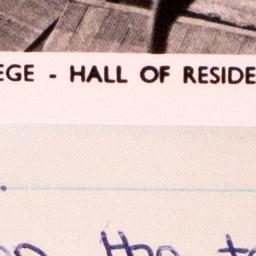 EGE - HALL OF RESIDE
on the to